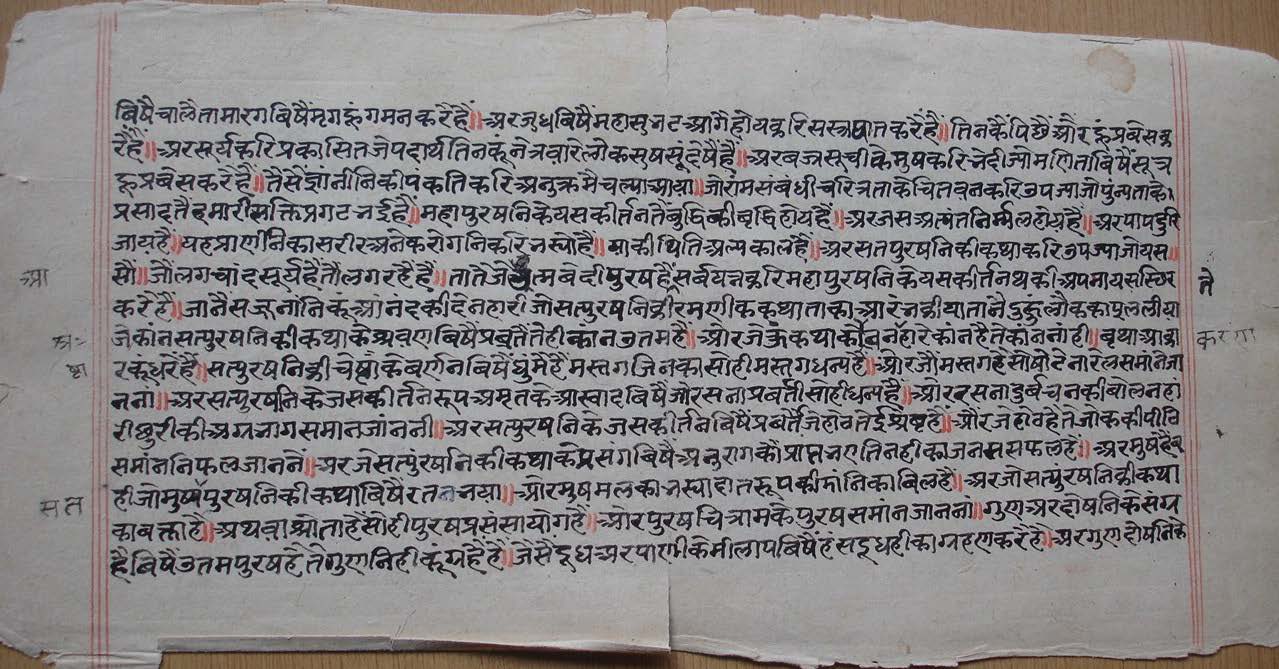 बिषै चालै ता मारग बिषैं मृग हूं गमन करैं हैं॥ अर जुध बिषैं महा सुभट आगै होय करि सस्त्रपात करैं हैं॥ तिनकै पिछै और हूं प्रबेस क
रैं हैं॥ अर सूर्य करि प्रकासित जे पदार्थ तिनकूं नेत्रवारे लोक सुष सूं देषैं हैं॥ अर बज्र सूची के मुष करि भेदी जो मणि ता बिषैं सूत्र
हू प्रबेस करै है॥ तैसें ज्ञांनीनि की पंकति करि अनुक्रमै चल्या आया॥ जो रांम संबंधी चरित्र ताके चितवन करि उपज्या जो पुंन्य ताके
प्रसाद तैं हमारी भक्ति प्रगट भई है॥ महापुरषनि के यस कीर्तन तैं बुद्धि की बृद्धि होय है॥ अर जस अत्यंत निर्मल होय है॥ अर पाप दुरि
जाय है॥ यह प्राणीनि का सरीर अनेक रोगनि करि भस्यो है॥ याकी थिति अल्प काल है॥ अर सतपुरषनि की कथा करि उपज्या जो यस॥
सो॥ जौं लग चांद सूर्य है तौं लग रहै है॥ ता तै जे आत्मबेदी पुरष है सर्व यत्न करि महापुरषनि के यस कीर्तन थकी अपना यस स्थिर
करे है॥ जानै सज्जनांनि कू आंनंद की देनहारी जो सत्पुरषनि की रमणीक कथा ता का आरंभ कीया तानै दुहुं लोक का फल लीया
जे कांन सत्पुरषनि की कथा के श्रवण बिषै प्रवर्ते ते ही कांन उतम है॥ और जे कुकथा के सुननहारे कांन है ते कांन नांही॥ बृथा आका
र कूं धरें हैं॥ सत्पुरषनि की चेष्टा के बर्णन बिषैं घुमै है मस्तग जिनका सो ही मस्तग धन्य है॥ और जो मस्तग है सो थोटे नारेल समांन जा
ननां॥ अर सत्पुरषनि के जस कीर्तन रूप अमृत के आस्वाद बिषैं जो रसना प्रबर्ती सो ही धन्य है॥ और रसना दुर्बचन की बोलनहा
री छुरी की अग्रभाग समान जांननी॥ अर सत्पुरषनि के जस कीर्तन बिषैं प्रबर्तै जे होठ ते ई श्रेष्ठ है॥ और जे होठ है ते जोक की पीठि
समांन निफल जाननें॥ अर जे सत्पुंरषनि की कथा के प्रसंग बिषै अनुराग कौं प्राप्त भए तिनही का जनम सफल है॥ अर मुष है व
ही जो मुष्य पुरषनि की कथा बिषैं रत भया॥ और मुष मल का भस्या दांत रूप कीडांनि का बिल है॥ अर जो सत्पुरषनि की कथा
का वक्ता है॥ अथवा श्रोता है सो ही पुरष प्रसंसा योग है॥ और पुरष चित्रांम के पुरष समांन जाननां॥ गुण अर दोषनि के संग्र
है बिषैं उतम पुरष है ते गुणनि ही कूं ग्रहे है॥ जैसै दूध अर पाणी के मीलाप बिषैं हंस दूध ही का ग्रहण करै है॥ अर गुण दोषनि के
आ
सत
ते